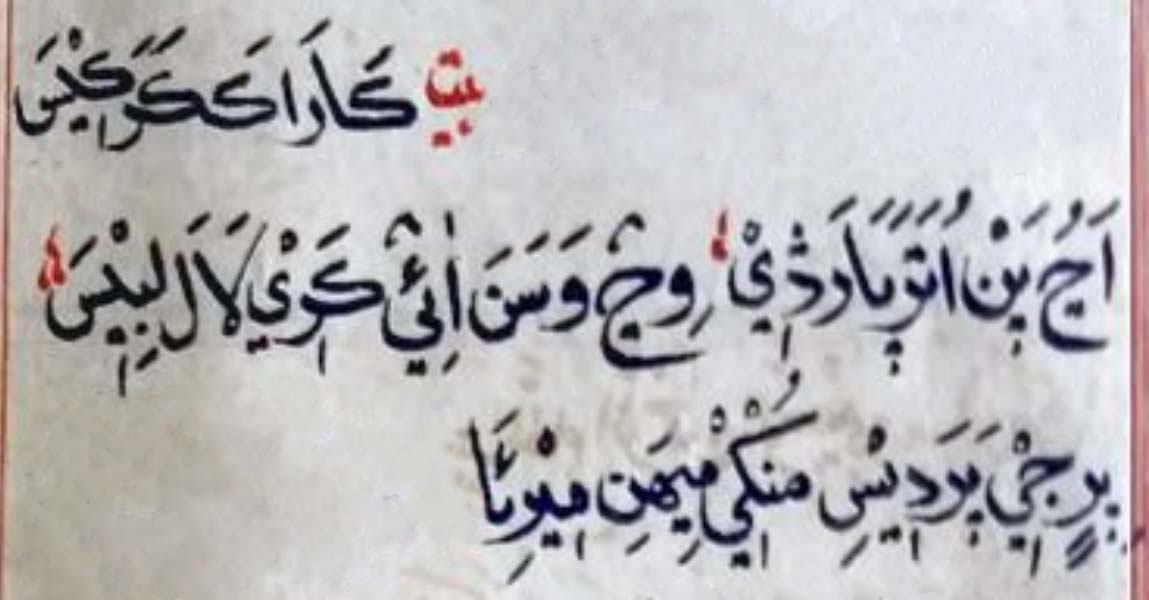 بيت كَارَا كَكَرَ كَيْسَ
اَڄُ پَنْ اُتَرَ پَارَ ڎِيْ، وِڄُ وَسَنَ اٰئِيْ كَرِيْ لَالَ لِبِيْسَ
پِرٍ جِيْ پَرَدِيْسِ مُنْكِيْ مِيْهَنِ مِيْرِئَا